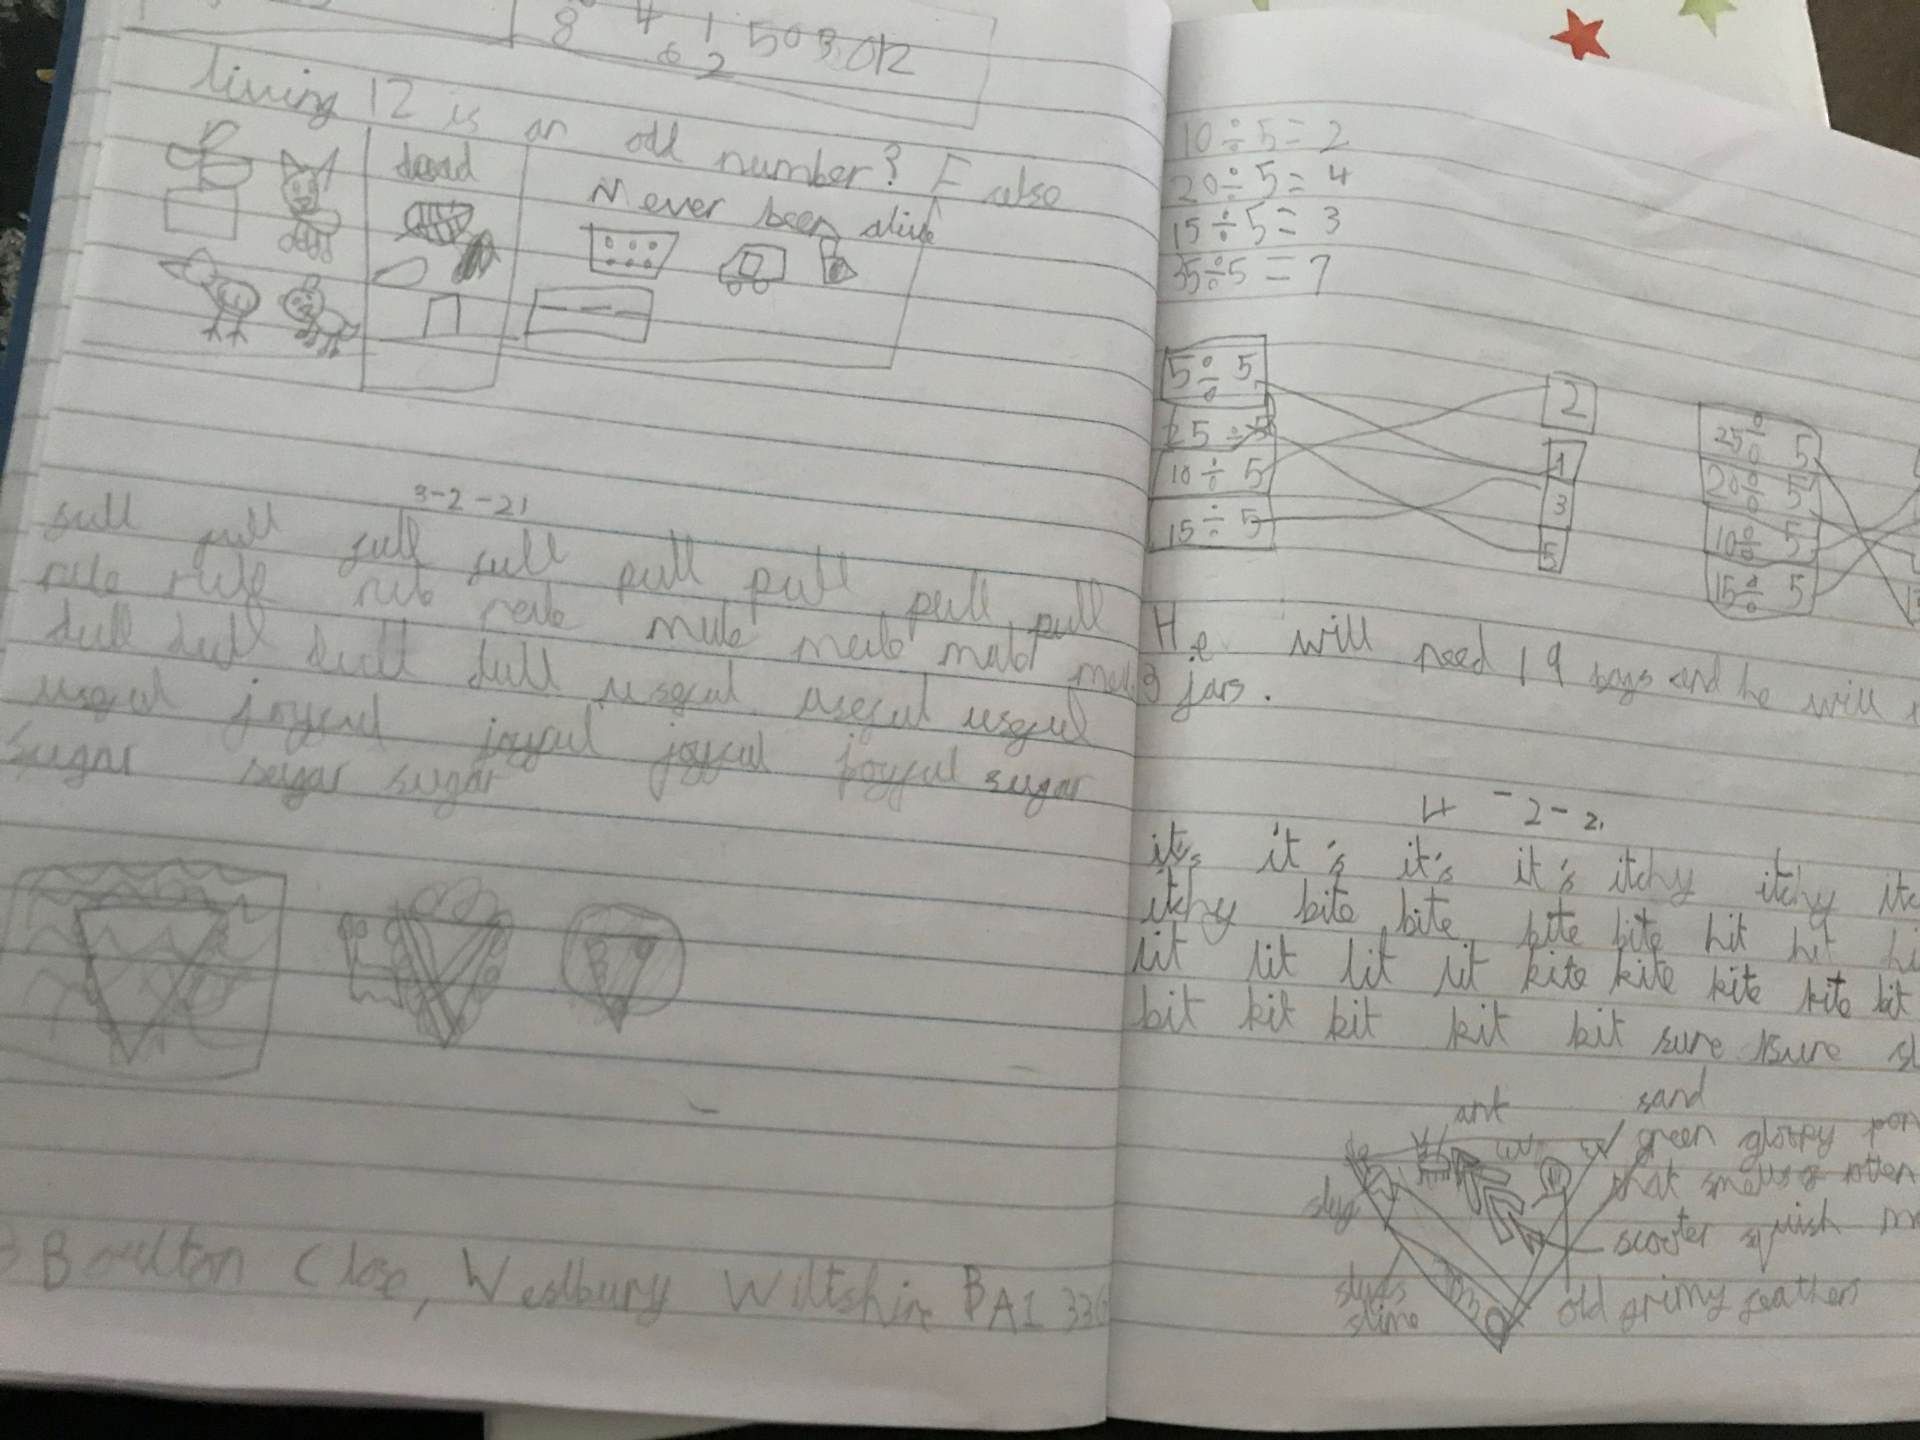 8 4 1 5 0 3 0 12
6 2
living 12 is an odd number? False
dead
Never been alive
3-2-21
full full full full pull pull pull pull
rule rule rule rule mule mule mule
dull dull dull dull useful useful useful
useful joyful joyful joyful joyful sugar
sugar sugar sugar
Boulton Close, Westbury Wiltshire BA1 33
10÷5=2
20÷5=4
15÷5=3
35÷5=7
5÷5
25÷5
10÷5
15÷5
2
1
3
5
25÷5
20÷5
10÷5
15÷5
He will need 19 bags and he will
3 jars.
4-2-2
it's it's it's it's itchy itchy
itchy bite bite bite bite hit hit
lit lit lit lit kite kite kite kite bit
bit kit kit kit kit sure sure
ant sand
green gloopy
that smells rotten
slug
scooter squish
slugs
slime
old grimy feathers